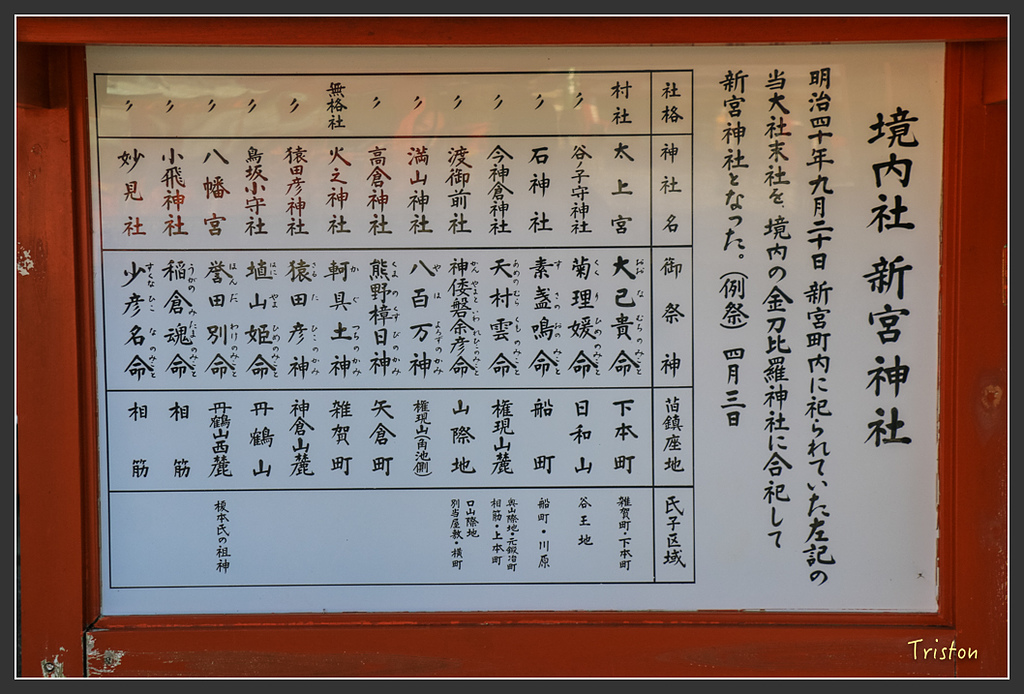 境内社 新宮神社
明治四十年九月二十日 新宮町内に祀られていた左記の
当大社末社を、境内の金刀比羅神社に合祀して
新宮神社となった。(例祭) 四月三日
社格 神社名 御祭神 旧鎮座地 氏子区域
村社 太上宮 大己貴命 下本町 雑賀町・下本町
〃 谷ノ子守神社 菊理媛命 日和山 谷王地
〃 石神社 素盞鳴命 船町 船町・川原
〃 今神倉神社 天村雲命 権現山麓 奥山際地・元鍛冶町 相筋・上本町
〃 渡御前社 神倭磐余彦命 山際地 口山際地 別当屋敷・横町
〃 満山神社 八百万神 権現山(角池側)
〃 高倉神社 熊野樟日神 矢倉町
無格社 火之神社 軻具土神 雑賀町
〃 猿田彦神社 猿田彦神 神倉山麓
〃 鳥坂小守社 埴山姫命 丹鶴山
〃 八幡宮 誉田別命 丹鶴山西麓 榎本氏の祖神
〃 小飛神社 稲倉魂命 相筋
〃 妙見社 少彦名命 相筋
Triston